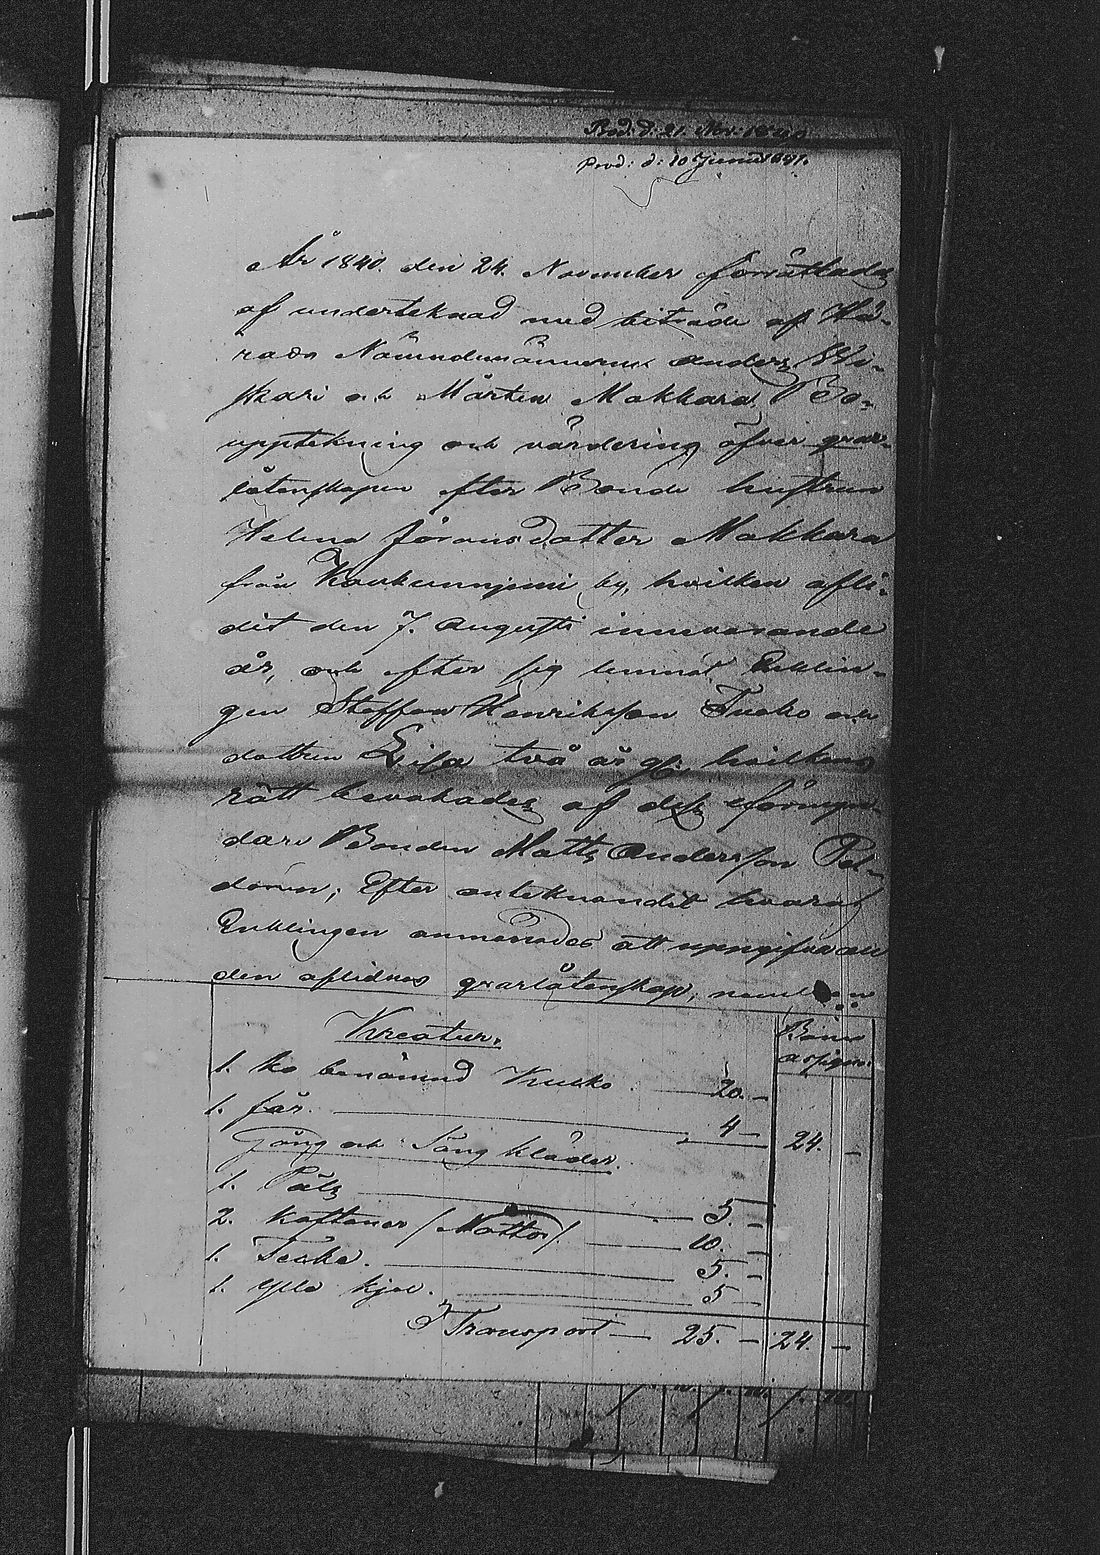 Prod: d: 10 Junii 1841.
År 1840. den 24. November förrättades
af undertecknad med biträde af Hä-
rads Nämndemännerne Anders
och Mårten Makkara, Bo-
uppteckning och värdering öfver qvar-
låtenskapen efter Bonde hustrun
Helena Jöransdotter Makkara
från by, hvilken afli-
dit den 7. Augusti innevarande
år, och efter sig lemnat Enklin-
gen Staffan Henriksson Tucko och
dottren Lisa två år gl. hvilkens
rätt bevakades af dess förmyn-
dare Bonden Matts Andersson Pel-
; Efter antecknandet häraf
Enklingen anmanades att uppgifva all
den aflidnes qvarlåtenskap, nemligen
Kreatur.
Banco
assignr.
1. ko benämnd Kucko 20. —
1. får. 4 — 24. —
Gång och Säng kläder.
1. Päls 5. —
2. Kaftaner / Mattor / 10. —
1. Täcke. 5. —
1. ylle kjol. 5 —
Transport — 25. — 24. —